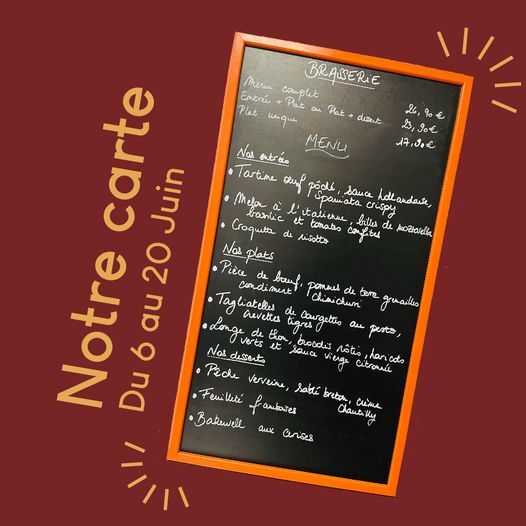 Notre carte
Du 6 au 20 Juin
BRASSERIE
Menu complet 26,90€
Entrée + Plat ou Plat + dessert 23,90€
Plat unique 17,90€
MENU
Nos entrées
• Tartine œuf pôché, sauce hollandaise,
Spianata crispy
• Melon à l'italienne, billes de mozzarella
basilic et tomates confites
• Croquette de risotto
Nos plats
• Pièce de bœuf, pommes de terre grenailles
condiment Chimichuri
• Tagliatelles de courgettes au pesto,
crevettes tigres
• Longe de thon, brocolis rôtis, haricots
verts et sauce vierge citronnée
Nos desserts
• Pêche verveine, sablé breton, crème
Chantilly
• Feuilleté framboises
• Bakewell aux cerises